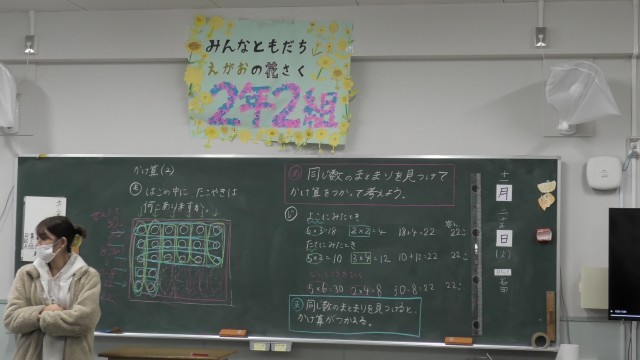 みんなともだち
えがおの花さく
2年2組
かけ算(2)
はこの中に、たこやきは
何こありますか。
同じ数のまとまりを見つけて
かけ算をつかって考えよう。
よこにみたとき
6×3=18 2×2=4 18+4=22 22こ
たてにみたとき
5×2=10 3×4=12 10+12=22 22こ
5×6=30 2×4=8 30-8=22 22こ
同じ数のまとまりを見つけると、
かけ算がつかえる。
十二月
日